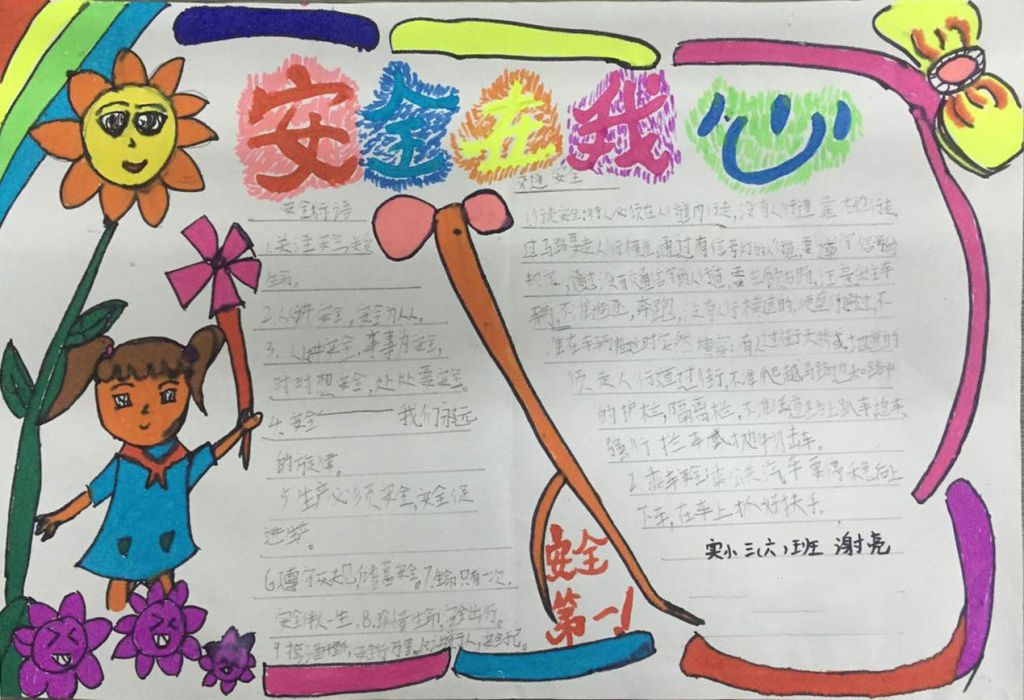 安全在我心
安全标语
1.关注安全,关爱
生命。
2.人人讲安全,安全为人人。
3、人人讲安全,事事为安全,
时时想安全,处处要安全。
4、安全——我们永远
的旋律。
5生产必须安全,安全促
进生产。
6.遵守交规,储蓄安全。7.生命只有一次,
安全伴人一生.8.珍惜生命,安全出行。
安全
第一!
交通安全
1.行走安全:行人必须在人行道内行走,没有人行道靠右边行走,
过马路要走人行横道,通过有信号灯的人行道,要遵守信号的
规定,通过没有交通信号的人行道,要左顾右盼,注意来往车
辆,不准追逐,奔跑,没有人行横道的,须直行通过,不
准在车辆临近时突然横穿;有人行过街天桥或地道的
须走人行过街道,不准爬越马路边和路中
的护栏,隔离栏,不准在道路上扒车追车
强行拦车或抛物击车。
2.乘车安全:乘公共汽车要停稳后上
下车,在车上扒好扶手。
实小三(六)班 谢亮